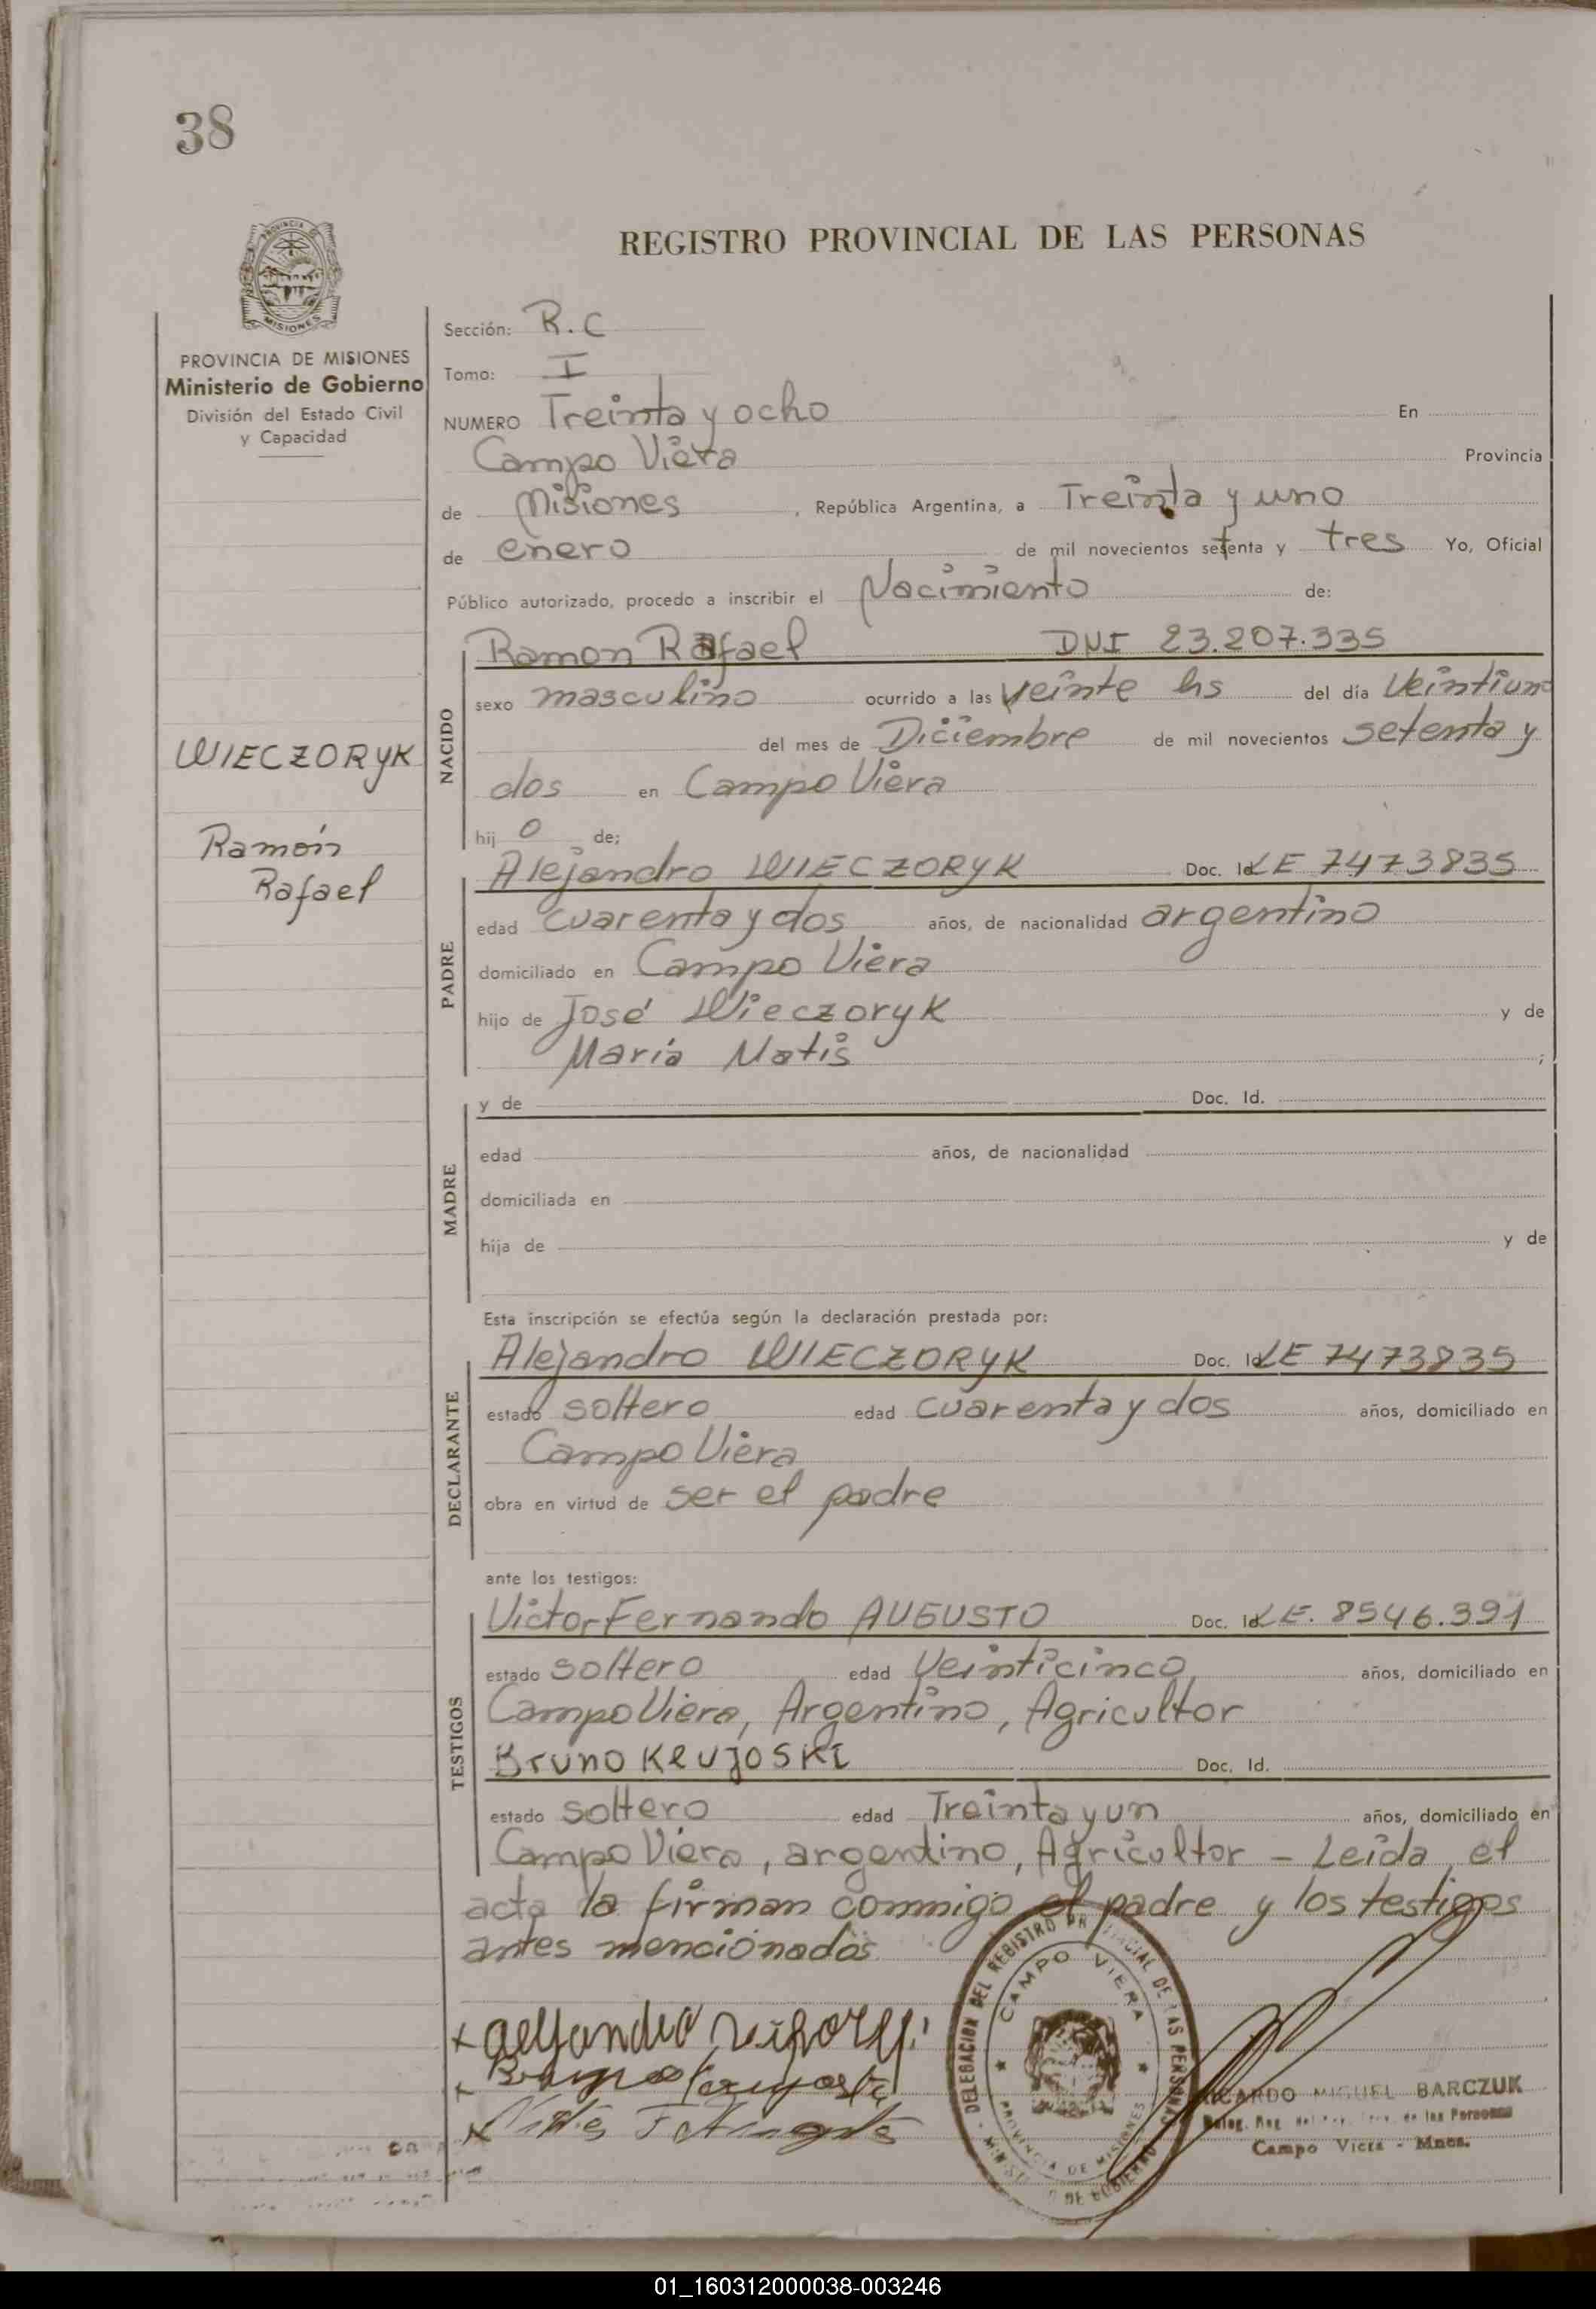 38
REGISTRO PROVINCIAL DE LAS PERSONAS
PROVINCIA DE MISIONES
Ministerio de Gobierno
División del Estado Civil
y Capacidad
Sección: R.C
Tomo: I
NUMERO Treinta y ocho En
Campo Viera Provincia
de Misiones, República Argentina, a Treinta y uno
de enero de mil novecientos setenta y tres Yo, Oficial
Público autorizado, procedo a inscribir el Nacimiento de:
NACIDO
Ramon Rafael DNI 23.207.335
sexo masculino ocurrido a las veinte hs del día Veintiuno
del mes de Diciembre de mil novecientos setenta y
dos en Campo Viera
hij o de;
WIECZORYK
Ramón
Rafael
PADRE
Alejandro WIECZORYK Doc. Id LE 7473835
edad cuarenta y dos años, de nacionalidad argentino
domiciliado en Campo Viera
hijo de José Wieczoryk y de
María Matis ;
MADRE
y de Doc. Id.
edad años, de nacionalidad
domiciliada en
hija de y de
Esta inscripción se efectúa según la declaración prestada por:
DECLARANTE
Alejandro WIECZORYK Doc. Id LE 7473835
estado soltero edad cuarenta y dos años, domiciliado en
Campo Viera
obra en virtud de ser el padre
ante los testigos:
TESTIGOS
Victor Fernando AUGUSTO Doc. Id LE. 8546.391
estado soltero edad Veinticinco años, domiciliado en
Campo Viera, Argentino, Agricultor
Bruno KRUJOSKI Doc. Id.
estado soltero edad Treinta y un años, domiciliado en
Campo Viera, argentino, Agricultor - Leida el
acta la firman conmigo el padre y los testigos
antes mencionados
DELEGACION DEL REGISTRO PROVINCIAL DE LAS PERSONAS
CAMPO VIERA
PROVINCIA DE MISIONES
RICARDO MIGUEL BARCZUK
de las Personas
Campo Viera - Mnes.
01_160312000038-003246